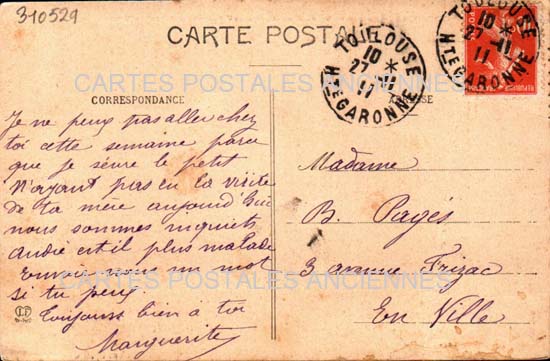 310529
CARTE POSTALE
TOULOUSE
10 *
27 -11
11
HTE GARONNE
TOULOUSE
10 *
27 -11
11
HTE GARONNE
CARTES POSTALES ANCIENNES
CORRESPONDANCE
Je ne peux pas aller chez
toi cette semaine parce
que je sèvre le petit
N'ayant pas eu la visite
de ta mère aujourd'hui
nous sommes inquiets
André est-il plus malade
Envoie nous un mot
si tu peux.
Toujours bien à toi
Marguerite
Madame
B. Pagès
3 avenue Frizac
En Ville
CARTES POSTALES ANCIENNES